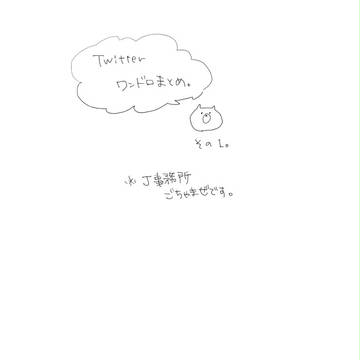 Twitter
ワンドロまとめ。
その1。
※J事務所
ごちゃまぜです。